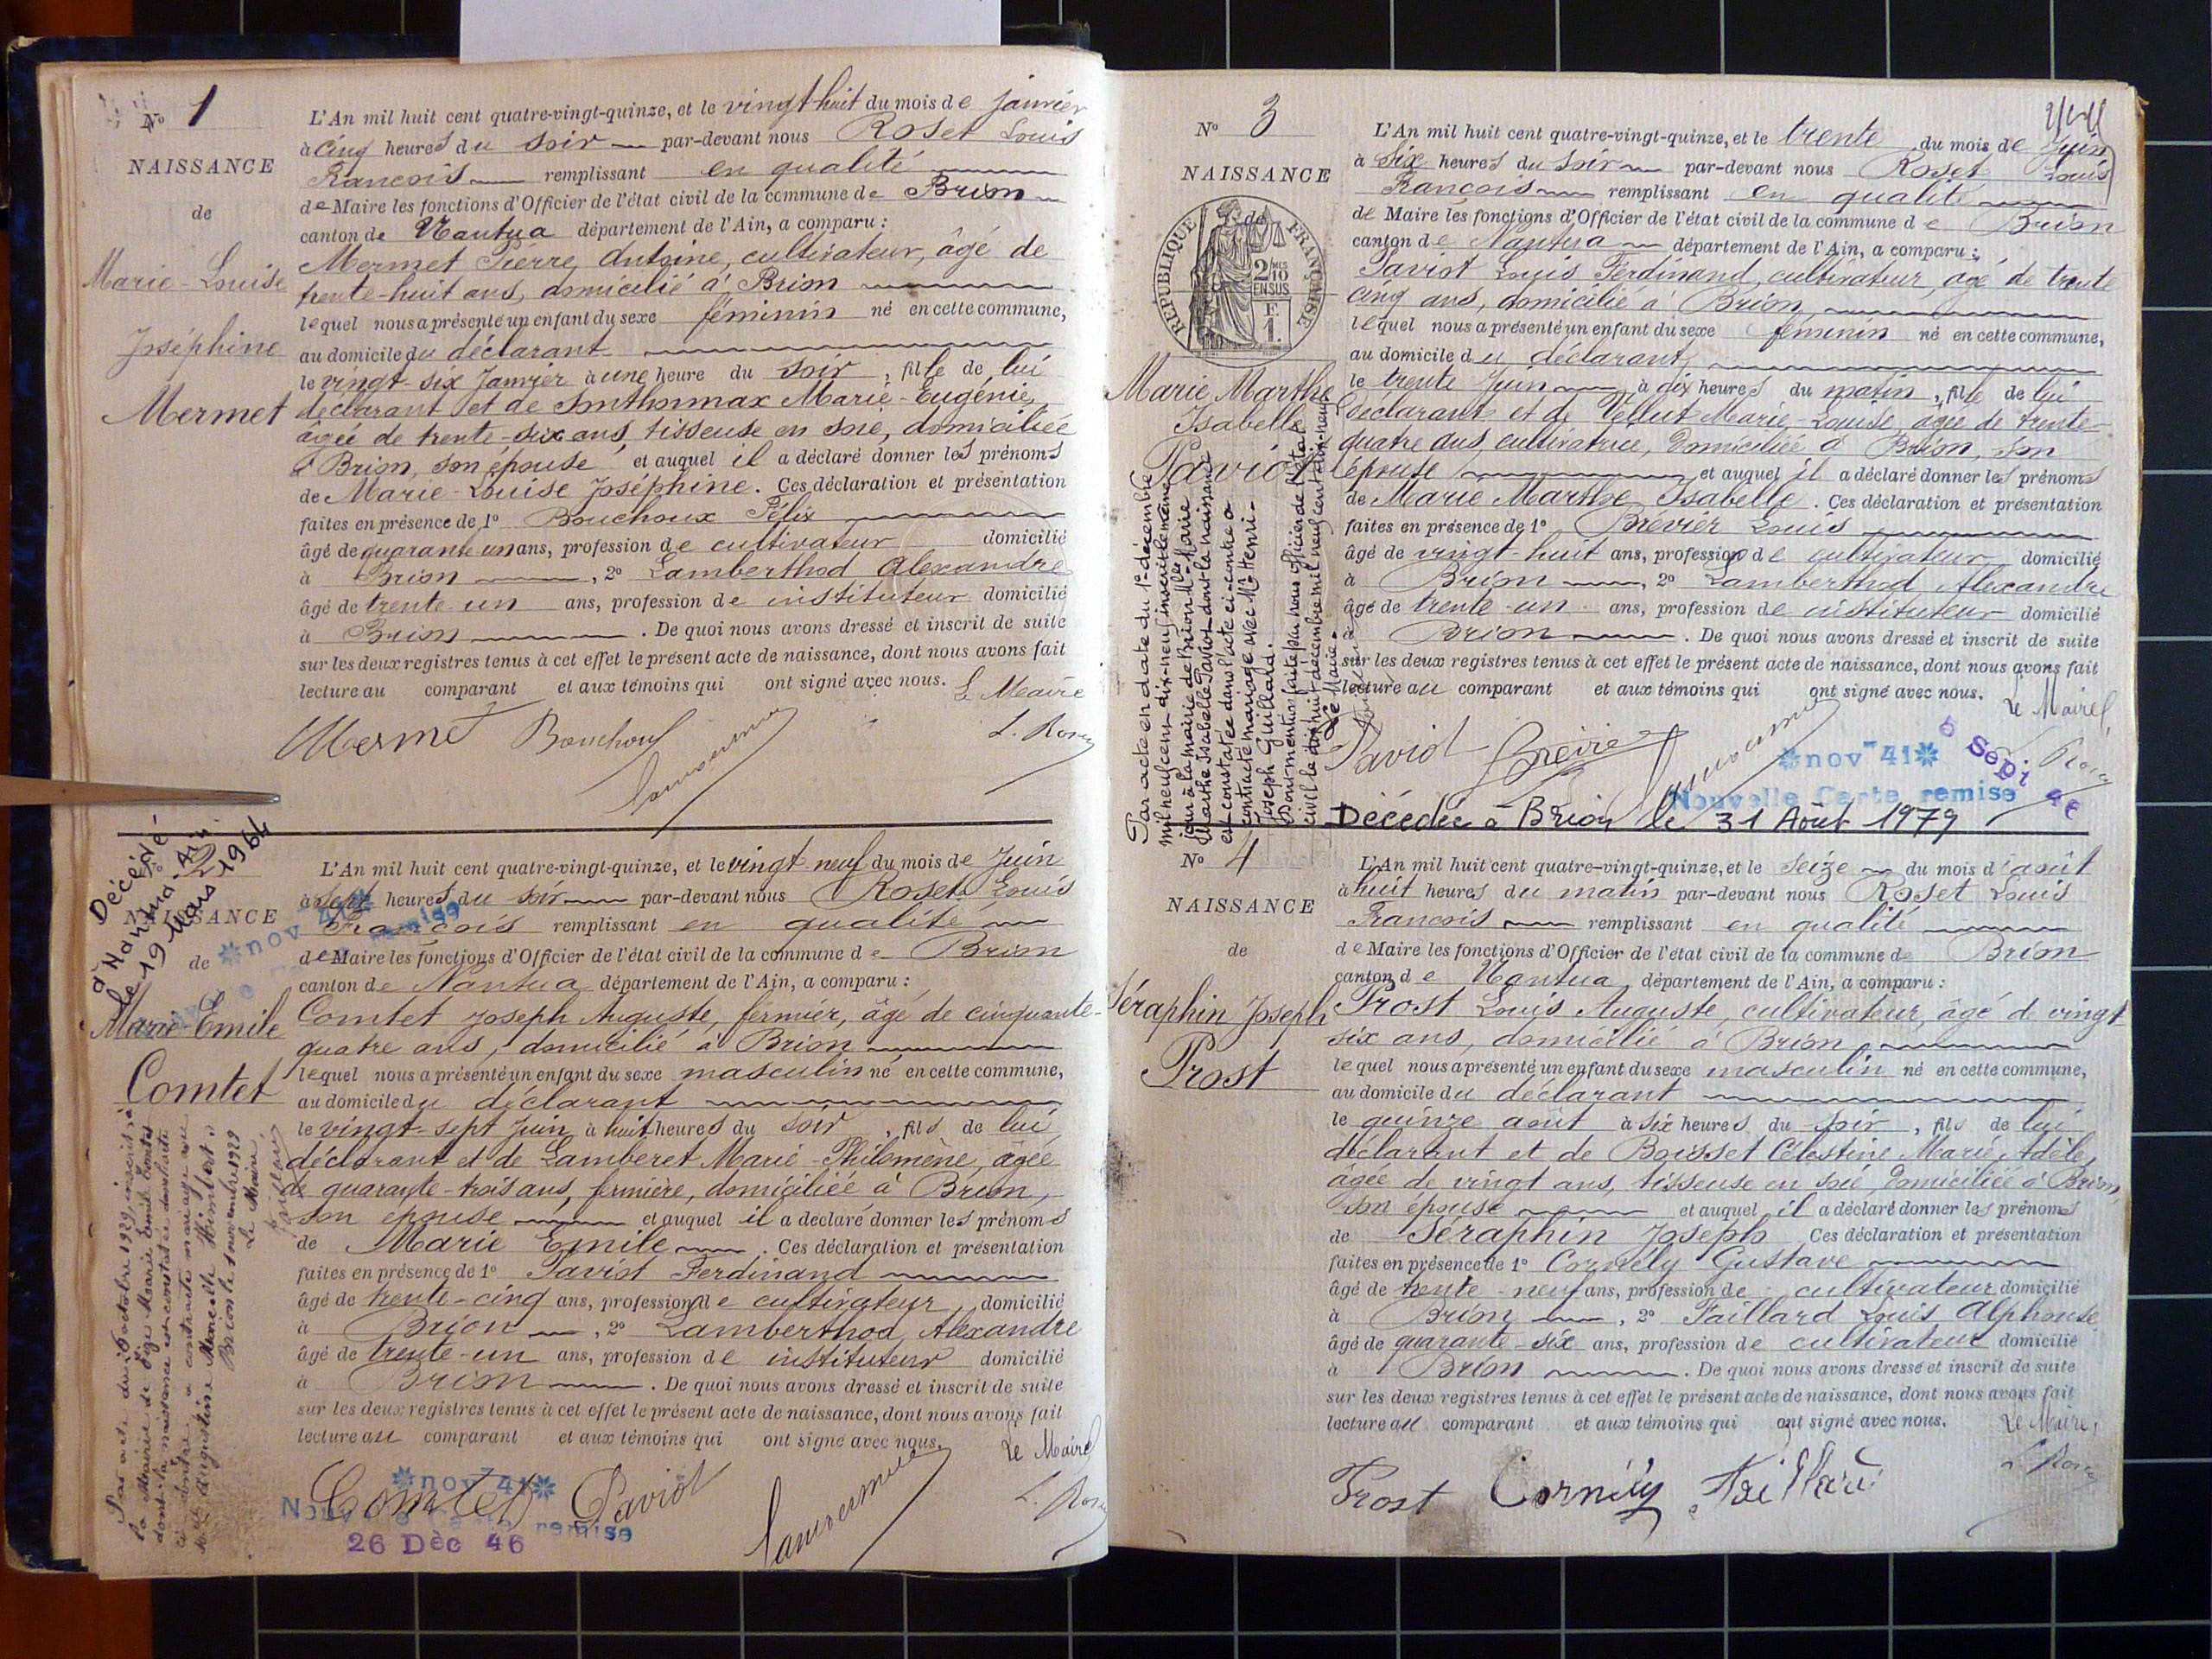 N° 1
NAISSANCE
de
Marie-Louise
Joséphine
Mermet
L'An mil huit cent quatre-vingt-quinze, et le vingt huit du mois de janvier
à cinq heures du soir par-devant nous Roset Louis
François remplissant en qualité
de Maire les fonctions d'Officier de l'état civil de la commune de Brion
canton de Nantua département de l'Ain, a comparu :
Mermet Pierre Antoine, cultivateur, âgé de
trente-huit ans, domicilié à Brion
lequel nous a présenté un enfant du sexe féminin né en cette commune,
au domicile du déclarant
le vingt-six Janvier à une heure du soir, fille de lui
déclarant et de Sonthonnax Marie-Eugénie,
âgée de trente-six ans, tisseuse en soie, domiciliée
à Brion, son épouse et auquel il a déclaré donner les prénoms
de Marie-Louise Joséphine. Ces déclaration et présentation
faites en présence de 1° Bouchoux Félix
âgé de quarante un ans, profession de cultivateur domicilié
à Brion, 2° Lamberthod Alexandre
âgé de trente-un ans, profession de instituteur domicilié
à Brion. De quoi nous avons dressé et inscrit de suite
sur les deux registres tenus à cet effet le présent acte de naissance, dont nous avons fait
lecture au comparant et aux témoins qui ont signé avec nous. Le Maire
Mermet Bouchoux
L. Roset
Décédé
à Nantua (Ain)
le 19 Mars 1964
N° 2
NAISSANCE
de
Marie-Emile
Comtet
*nov 41*
remise
L'An mil huit cent quatre-vingt-quinze, et le vingt-neuf du mois de Juin
à sept heures du soir par-devant nous Roset Louis
François remplissant en qualité
de Maire les fonctions d'Officier de l'état civil de la commune de Brion
canton de Nantua département de l'Ain, a comparu :
Comtet Joseph Auguste, fermier, âgé de cinquante-
quatre ans, domicilié à Brion
lequel nous a présenté un enfant du sexe masculin né en cette commune,
au domicile du déclarant
le vingt-sept Juin à huit heures du soir, fils de lui
déclarant et de Lamberet Marie-Philomène, âgée
de quarante-trois ans, fermière, domiciliée à Brion,
son épouse et auquel il a déclaré donner les prénoms
de Marie Emile. Ces déclaration et présentation
faites en présence de 1° Paviot Ferdinand
âgé de trente-cinq ans, profession de cultivateur, domicilié
à Brion, 2° Lamberthod Alexandre
âgé de trente-un ans, profession de instituteur domicilié
à Brion. De quoi nous avons dressé et inscrit de suite
sur les deux registres tenus à cet effet le présent acte de naissance, dont nous avons fait
lecture au comparant et aux témoins qui ont signé avec nous.
Le Maire
Comtet Paviot
L. Roset
*nov 41*
Nouvelle Carte remise
26 Déc 46
Par acte du octobre 1929, inscrit à
la Mairie de Marie Emile Comtet
dont la naissance est constatée dans l'acte
ci-contre a contracté mariage avec
Augustine Marcelle Humbert
Brion le novembre 1929
Le Maire
N° 3
NAISSANCE
de
RÉPUBLIQUE FRANÇAISE
2/10 EN SUS
F. 1.
Marie Marthe
Isabelle
Paviot
L'An mil huit cent quatre-vingt-quinze, et le trente du mois de Juin
à six heures du soir par-devant nous Roset Louis
François remplissant en qualité
de Maire les fonctions d'Officier de l'état civil de la commune de Brion
canton de Nantua département de l'Ain, a comparu :
Paviot Louis Ferdinand, cultivateur, âgé de trente
cinq ans, domicilié à Brion,
lequel nous a présenté un enfant du sexe féminin né en cette commune,
au domicile du déclarant,
le trente Juin à dix heures du matin, fille de lui
déclarant et de Vellut Marie-Louise, âgée de trente-
quatre ans, cultivatrice, domiciliée à Brion, son
épouse et auquel il a déclaré donner les prénoms
de Marie Marthe Isabelle. Ces déclaration et présentation
faites en présence de 1° Brevier Louis
âgé de vingt-huit ans, profession de cultivateur domicilié
à Brion, 2° Lamberthod Alexandre
âgé de trente-un ans, profession de instituteur domicilié
à Brion. De quoi nous avons dressé et inscrit de suite
sur les deux registres tenus à cet effet le présent acte de naissance, dont nous avons fait
lecture au comparant et aux témoins qui ont signé avec nous.
Le Maire,
Paviot
*nov 41*
Nouvelle Carte remise
5 Sept 46
Décédée à Brion le 31 Août 1979
Par acte en date du 1er décembre
mil neuf cent dix-neuf, inscrit le même
jour à la mairie de Brion, Mlle Marie
Marthe Isabelle Paviot dont la naissance
est constatée dans l'acte ci-contre a
contracté mariage avec Mr Henri-
Joseph Guillard.
Dont mention faite par nous officier de l'état
civil le dix-huit décembre mil neuf cent dix-neuf
Le Maire
N° 4
NAISSANCE
de
Séraphin Joseph
Prost
L'An mil huit cent quatre-vingt-quinze, et le seize du mois d'août
à huit heures du matin par-devant nous Roset Louis
François remplissant en qualité
de Maire les fonctions d'Officier de l'état civil de la commune de Brion
canton de Nantua, département de l'Ain, a comparu :
Prost Louis Auguste, cultivateur, âgé de vingt
six ans, domicilié à Brion,
lequel nous a présenté un enfant du sexe masculin né en cette commune,
au domicile du déclarant
le quinze août à six heures du soir, fils de lui
déclarant et de Boisset Célestine Marie Adèle,
âgée de vingt ans, tisseuse en soie, domiciliée à Brion,
son épouse et auquel il a déclaré donner les prénoms
de Séraphin Joseph Ces déclaration et présentation
faites en présence de 1° Cornély Gustave
âgé de trente-neuf ans, profession de cultivateur domicilié
à Brion, 2° Taillard Louis Alphonse
âgé de quarante-six ans, profession de cultivateur domicilié
à Brion. De quoi nous avons dressé et inscrit de suite
sur les deux registres tenus à cet effet le présent acte de naissance, dont nous avons fait
lecture au comparant et aux témoins qui ont signé avec nous.
Le Maire,
Prost Cornély Taillard
L. Roset